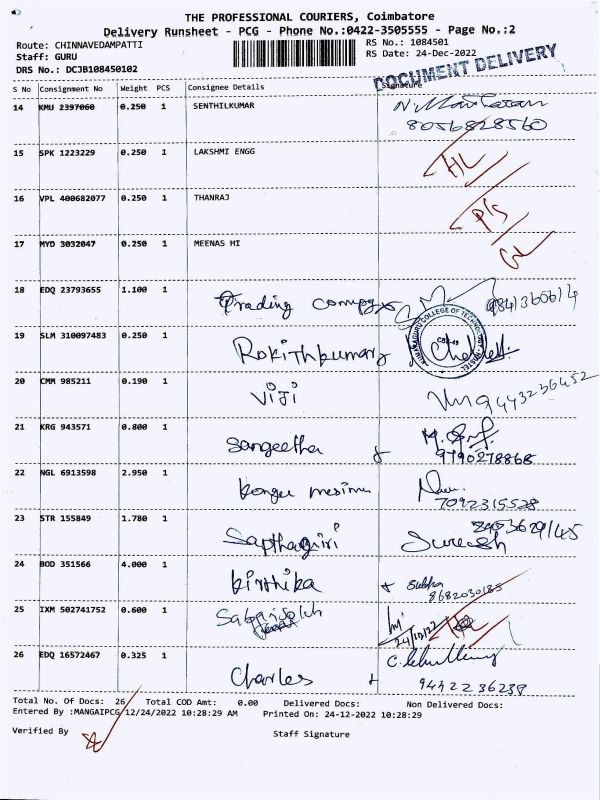 THE PROFESSIONAL COURIERS, Coimbatore
Delivery Runsheet - PCG - Phone No.:0422-3505555 - Page No.:2
Route: CHINNAVEDAMPATTI RS No.: 1084501
Staff: GURU RS Date: 24-Dec-2022
DRS No.: DCJB108450102
DOCUMENT DELIVERY
S No Consignment No Weight PCS Consignee Details Signature
14 KMU 2397060 0.250 1 SENTHILKUMAR
8056828560
15 SPK 1223229 0.250 1 LAKSHMI ENGG
16 VPL 400682077 0.250 1 THANRAJ
17 MYD 3032047 0.250 1 MEENAS HI
18 EDQ 23793655 1.100 1 Trading 9841360614
KUMARAGURU COLLEGE OF TECHNOLOGY
19 SLM 310097483 0.250 1 Rokithkumar
20 CMM 985211 0.190 1 Viji 9443236452
21 KRG 943571 0.800 1 Sangeetha
9790278868
22 NGL 6913598 2.950 1 kongu
7092315528
23 STR 155849 1.780 1 Sapthagiri Suresh
24 BOD 351566 4.000 1 kirthika Subha
8682030185
25 IXM 502741752 0.600 1
24/12/22
26 EDQ 16572467 0.325 1 Charles
9442236238
Total No. Of Docs: 26 Total COD Amt: 0.00 Delivered Docs: Non Delivered Docs:
Entered By :MANGAIPCG 12/24/2022 10:28:29 AM Printed On: 24-12-2022 10:28:29
Verified By Staff Signature